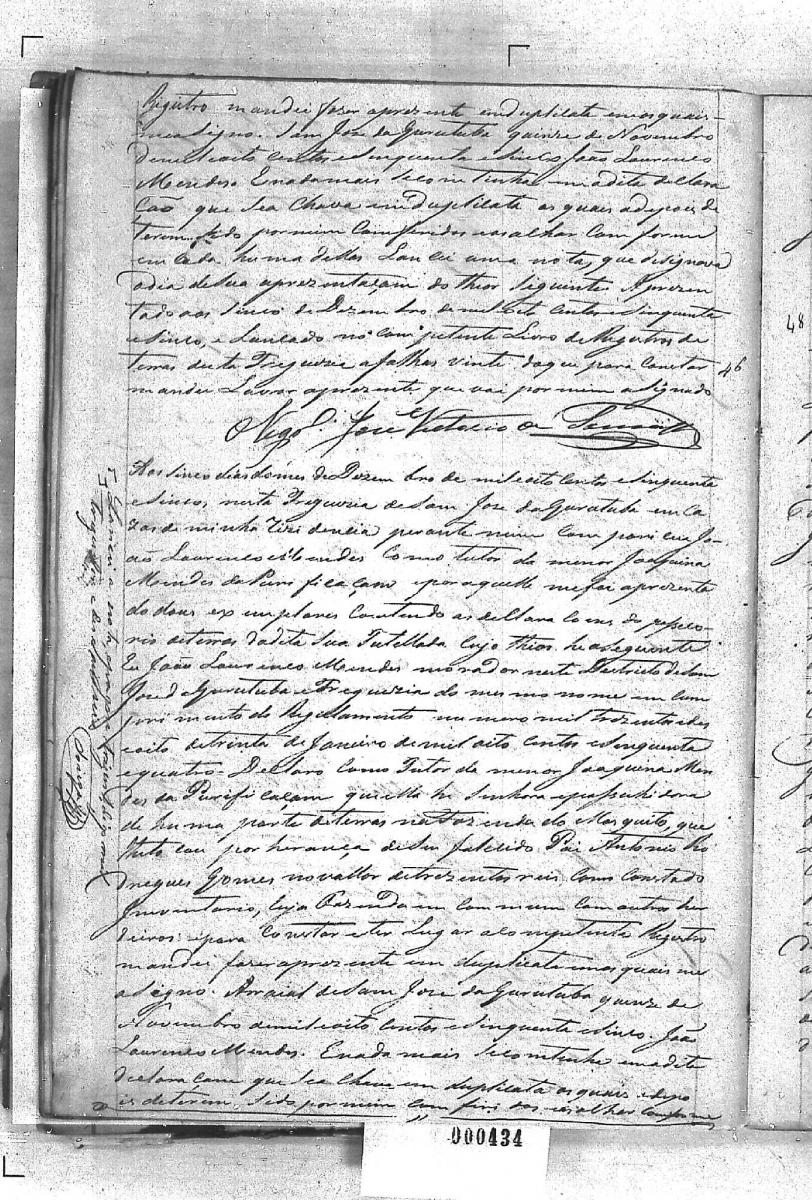 Registro mandei fazer aprezente emduplicata emasquais
measigno. Sam José da Gurutuba quinze de Novembro
demil eoito centos esinquenta esinco João Lourenco
Mendes. Enadamais secomtinha em adita declara
ção que sea chava em duplicata as quais adepois de
terem sido por mim comferidas easalhar comforme
em cada huma dellas Lancei uma nota, que designava
odia desua aprezentaçam do theor siguinte. Aprezen
tado aos sinco de Dezembro demiloito centos esinquenta
esinco, e Lancado no competente Livro de Registros de
terras desta Freguezia afolhas vinte. doque para constar
mandei Lavrar aprezente que vai por mim asignado
O Vigr.º José Victorio de
46
Aos sinco dias domes de Dezembro de mileoito centos esinquenta
esinco, nesta Freguezia deSam José da Gurutuba em ca
zas de minha rizidencia perante mim compareceu Jo
ão Lourenco Mendes como tutor da menor Joaquina
Mendes da Purificaçam eporaquelle mefoi aprezenta
do dous exemplares contendo as declaracoes do pesseo
rio deterras dadita sua Tutellada cujo theor he oseguinte
Eu João Lourenco Mendes morador neste Destricto deSam
José de Gurutuba e Freguezia do mesmo nome em com
primento do Regulamento numero mil trezentos edes
eoito detrinta de Janeiro de mil oito centos esinquenta
equatro. Declaro como Tutor da menor Joaquina Men
des da Purificaçam que ella he senhora epossuhidora
de huma parte deterras na Fazenda do Mosquito, que
lhe tocou por herança de seu falecido Pai Antonio Ro
dregues Gomes no vallor detrezentos reis como consta do
Inventario, cuja Fazenda em commum com outros her
deiros epara constar eter lugar a competente Registro
mandei fazer aprezente em duplicata emasquais me
asigno. Arraial deSam José da Gurutuba quinze de
Novembro demil eoito centos esinquenta esinco. João
Lourenco Mendes. Enada mais secontinha em adita
declaraçam que sea chava em duplicata asquais edepo
is deterem sido por mim comferidas easalhar comforme
48
000434